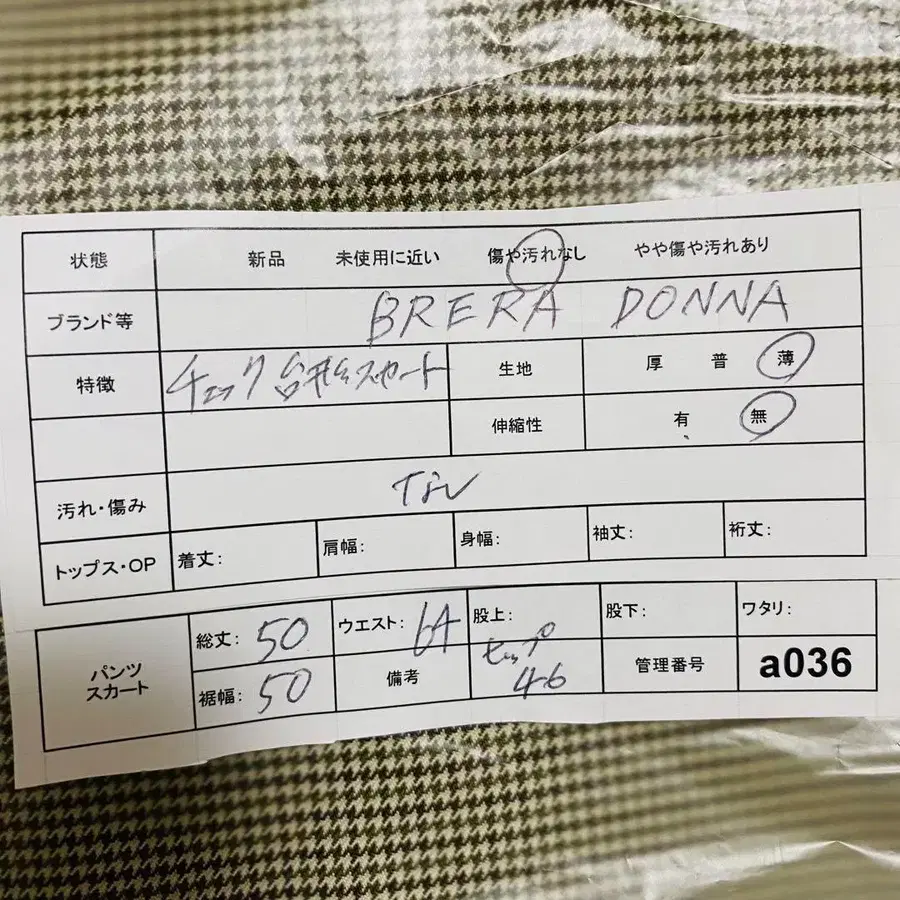 状態 新品 未使用に近い 傷や汚れなし やや傷や汚れあり
ブランド等 BRERA DONNA
特徴 チェック台形スカート 生地 厚 普 薄
伸縮性 有 無
汚れ・傷み なし
トップス・OP 着丈: 肩幅: 身幅: 袖丈: 裄丈:
パンツ スカート 総丈: 50 ウエスト: 64 股上: 股下: ワタリ:
裾幅: 50 備考 ヒップ 46 管理番号 a036